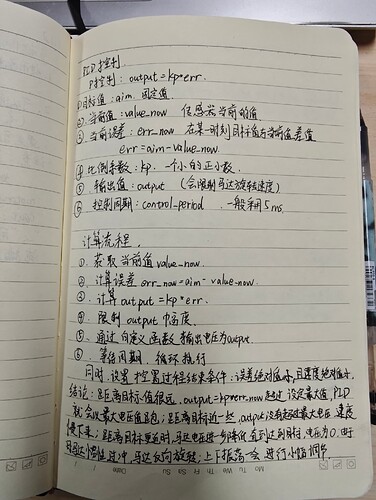 PID控制.
P控制: output=kp*err.
①目标值: aim. 固定值.
②. 当前值: value_now 传感器当前的值
③ 当前误差: err_now 在某一时刻目标值与当前值差值
err=aim-value_now.
④ 比例系数: kp. 一个小的正小数.
⑤ 输出值: output (会限制马达旋转速度)
⑥ 控制周期: control_period . 一般采用5ms.
计算流程.
①. 获取当前值value_now.
②. 计算误差 err_now=aim-value_now.
③. 计算output=kp*err.
④. 限制output幅度.
⑤. 通过自定义函数输出电压为output.
⑥. 等待周期. 循环执行
同时, 设置控制过程结束条件: 误差绝对值小, 且速度绝对值小.
结论: 距离目标值很远, output=kp*err_now超过设定最大值, PID
就会以最大电压值跑; 距离目标近一些, output没有超过最大电压 速度
慢下来; 距离目标更近时, 马达电压进一步降低 直到达到目标, 电压为0. 由于
马达小惯性过冲, 马达反向旋转; 上下振荡会进行小幅调节.
Mo Tu We Th Fr Sa Su
Date / /